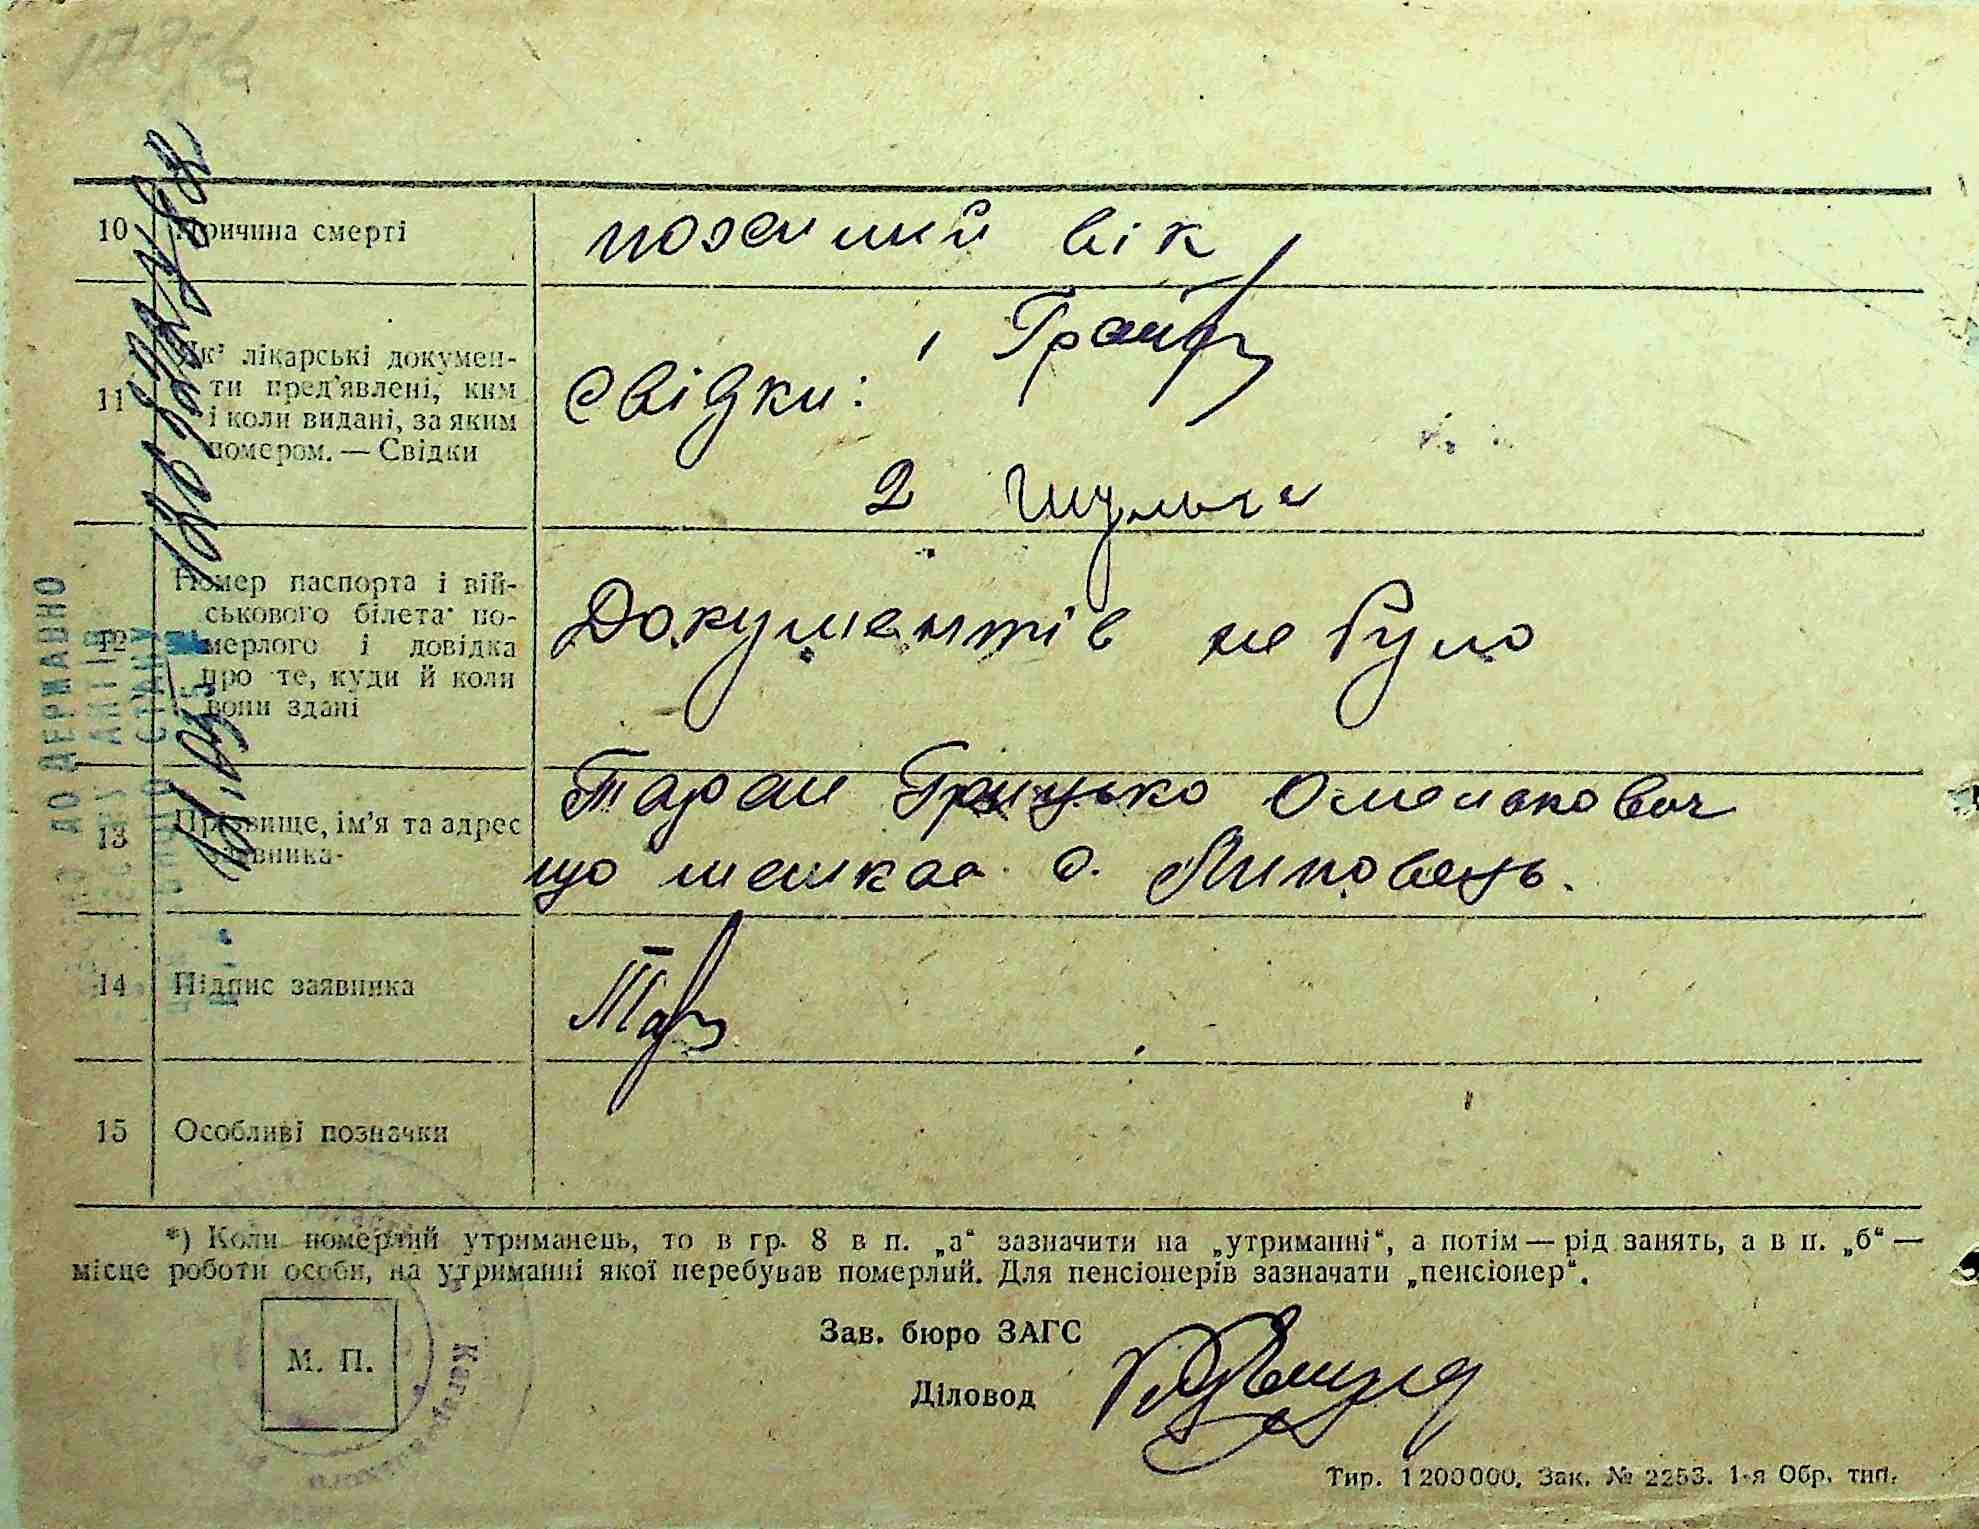 10 Причина смерті
похилий вік
11 Які лікарські докумен-
ти пред'явлені, ким
і коли видані, за яким
номером. — Свідки
Свідки: 1
2 Шульга
12 Номер паспорта і вій-
ськового білета по-
мерлого і довідка
про те, куди й коли
вони здані
Документів не було
13 Прізвище, ім'я та адрес
заявника
Таран Грицько Омелькович
що мешкає с. Липовець.
14 Підпис заявника
Тар
15 Особливі позначки
*) Коли померлий утриманець, то в гр. 8 в п. „а“ зазначити на „утриманні“, а потім — рід занять, а в п. „б“ —
місце роботи особи, на утриманні якої перебував померлий. Для пенсіонерів зазначати „пенсіонер“.
М. П.
Зав. бюро ЗАГС
Діловод
Тир. 1200000. Зак. № 2253. 1-я Обр. тип.